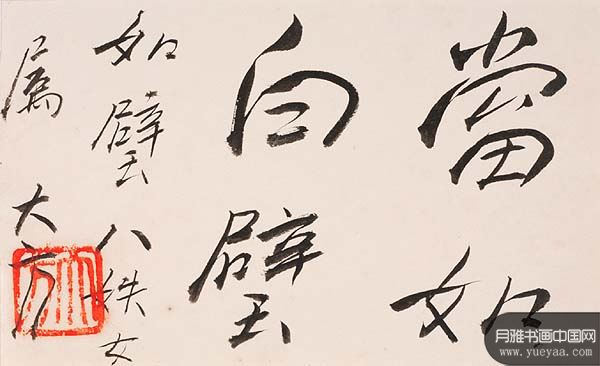 當如
白璧
如璧八女
属 大方
月雅书画中国网
www.yueyaa.com